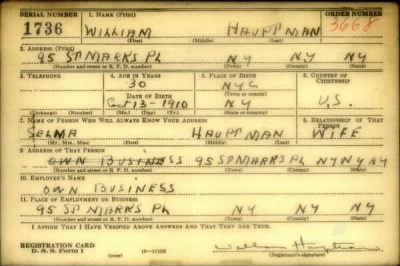 SERIAL NUMBER 1. NAME (Print) ORDER NUMBER
1736 WILLIAM HAUPTMAN 3668
(First) (Middle) (Last)
2. ADDRESS (Print)
95 ST MARKS PL NY NY NY
(Number and street or R. F. D. number) (Town) (County) (State)
3. TELEPHONE 4. AGE IN YEARS 5. PLACE OF BIRTH 6. COUNTRY OF CITIZENSHIP
30 NYC
DATE OF BIRTH (Town or county)
13-1910 NY U.S.
(Exchange) (Number) (Mo.) (Day) (Yr.) (State or country)
7. NAME OF PERSON WHO WILL ALWAYS KNOW YOUR ADDRESS 8. RELATIONSHIP OF THAT PERSON
SELMA HAUPTMAN WIFE
(Mr., Mrs., Miss) (First) (Middle) (Last)
9. ADDRESS OF THAT PERSON
OWN BUSINESS 95 ST MARKS PL NY NY NY
(Number and street or R. F. D. number) (Town) (County) (State)
10. EMPLOYER'S NAME
OWN BUSINESS
11. PLACE OF EMPLOYMENT OR BUSINESS
95 ST MARKS PL NY NY
(Number and street or R. F. D. number) (Town) (County) (State)
I AFFIRM THAT I HAVE VERIFIED ABOVE ANSWERS AND THAT THEY ARE TRUE.
REGISTRATION CARD
D. S. S. Form 1 (over) 16-17105 (Registrant's signature)